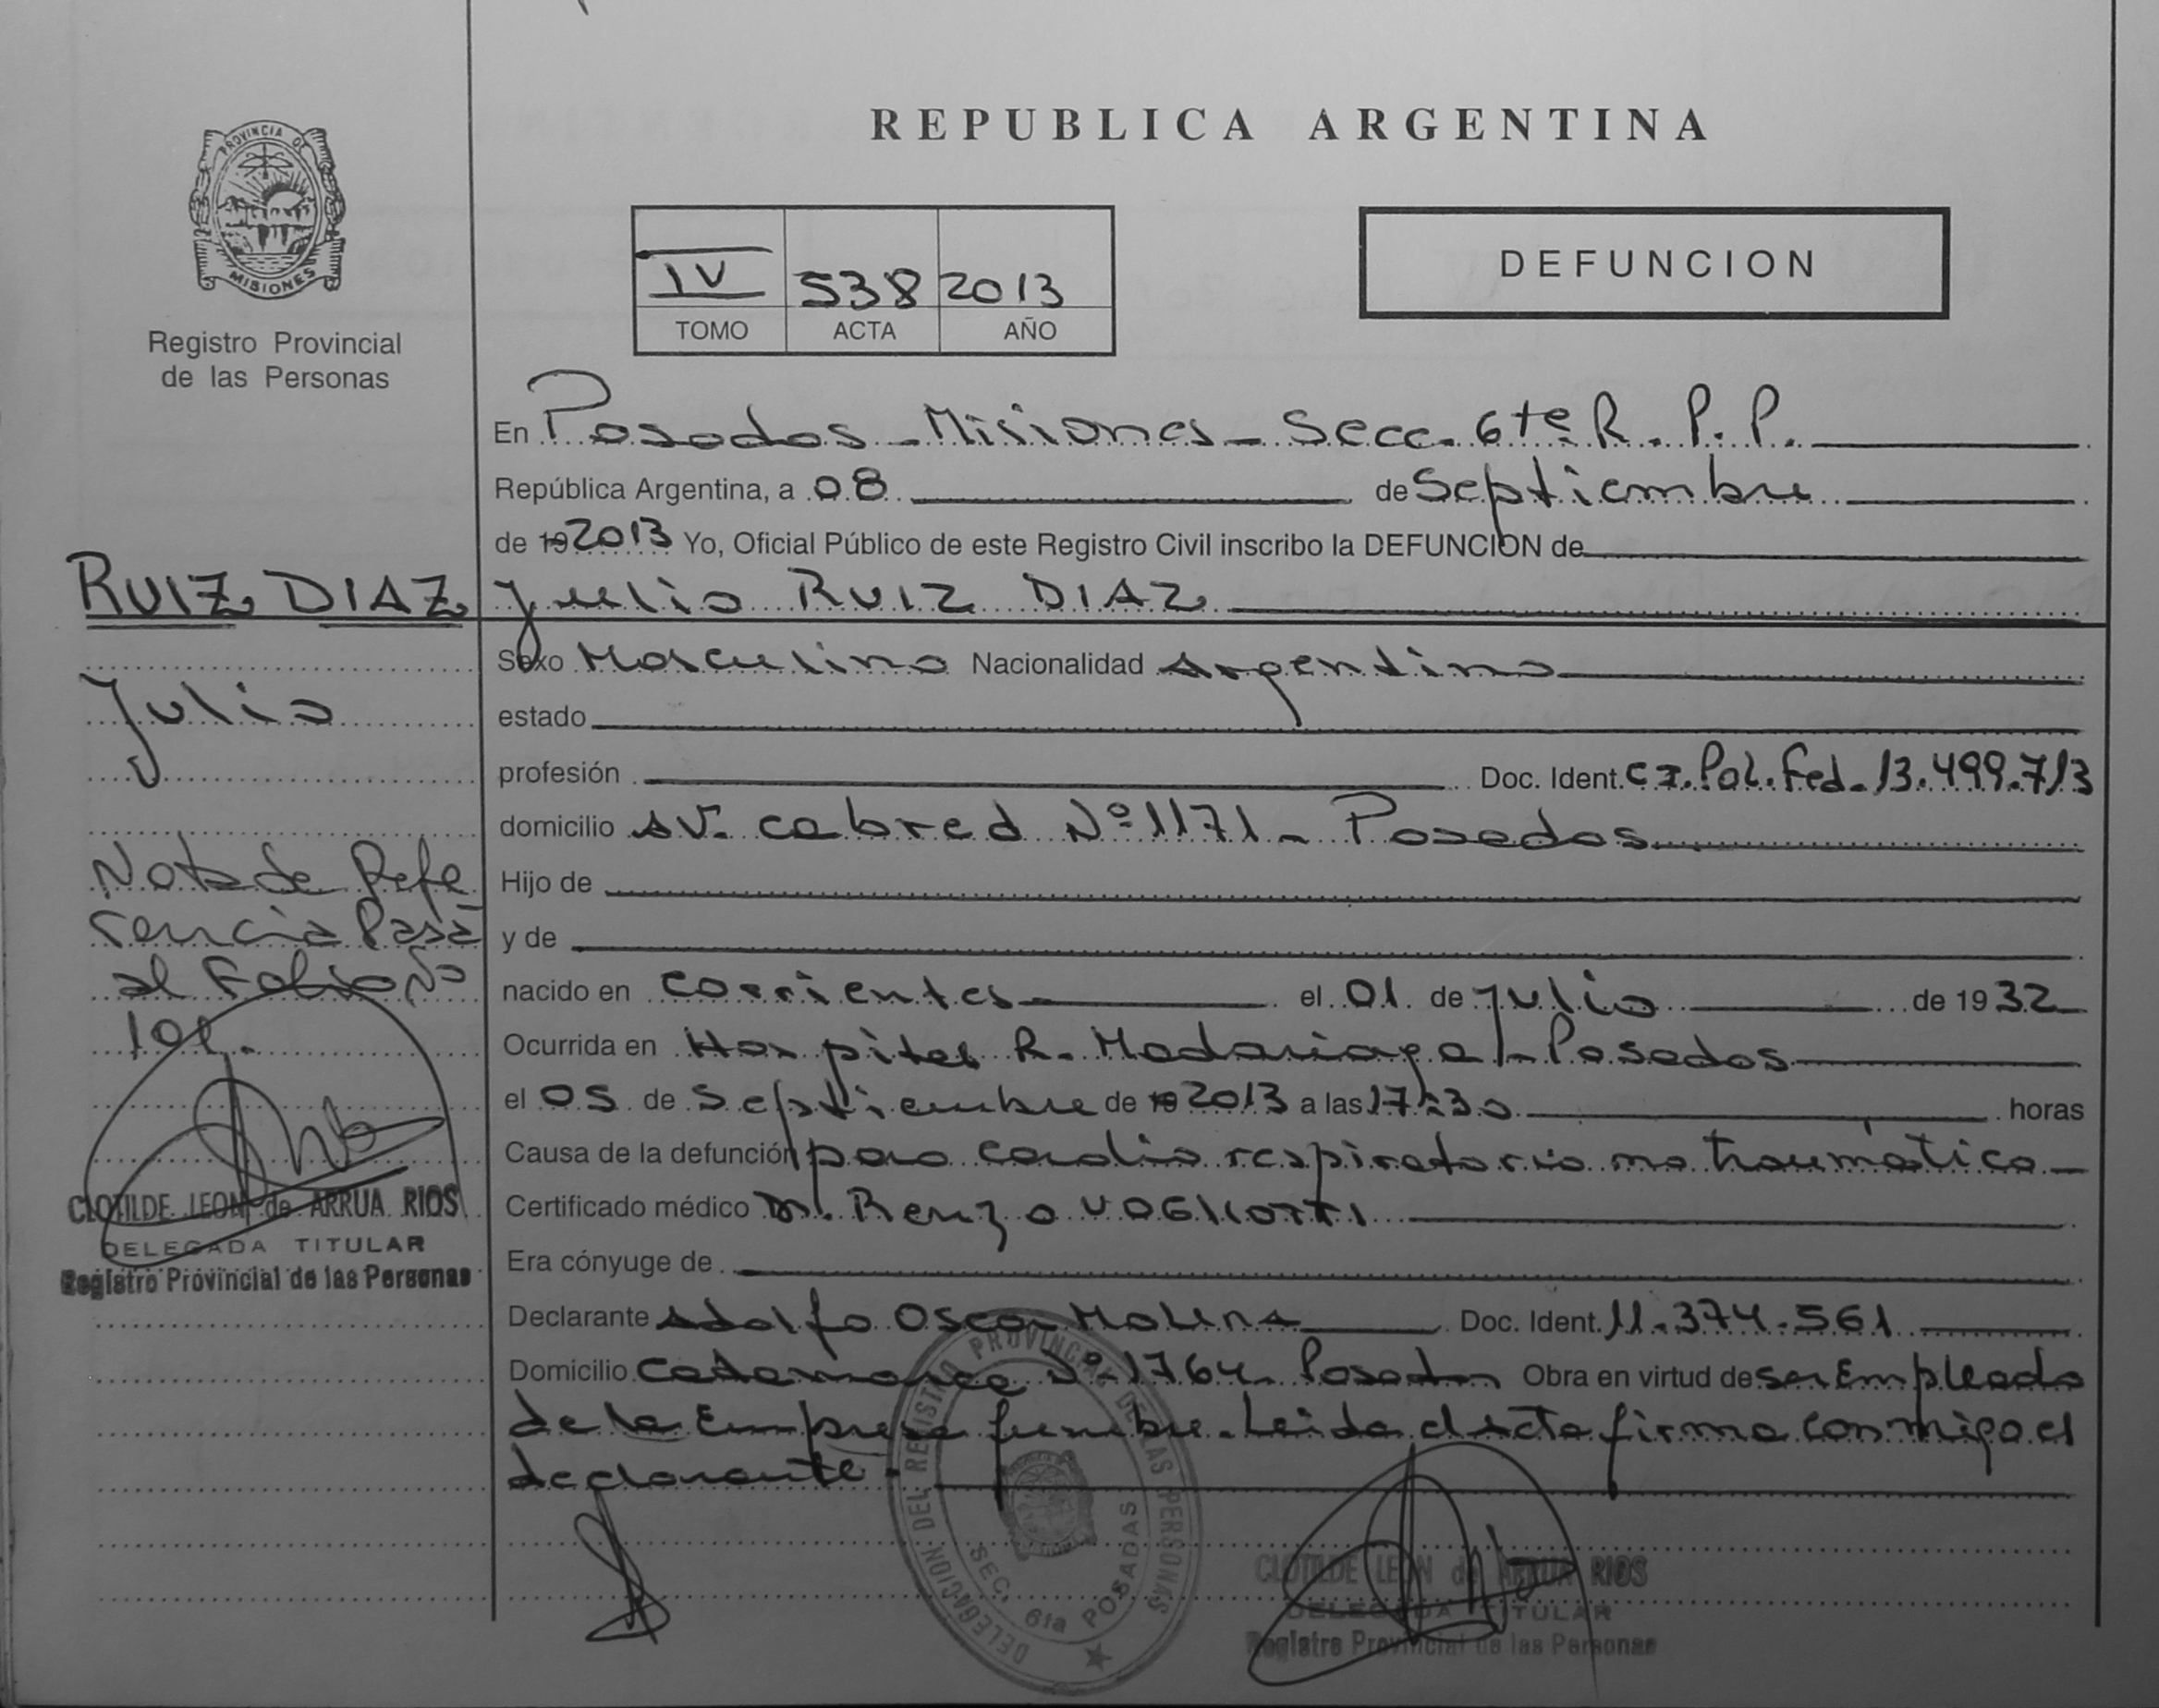 PROVINCIA DE
MISIONES
Registro Provincial
de las Personas
REPUBLICA ARGENTINA
IV 538 2013
TOMO ACTA AÑO
DEFUNCION
En Posadas - Misiones - Secc. 6ta R. P. P.
República Argentina, a 08 de Septiembre
de 19 2013 Yo, Oficial Público de este Registro Civil inscribo la DEFUNCION de
Julio RUIZ DIAZ
Sexo Masculino Nacionalidad Argentino
estado
profesión Doc. Ident. CI. Pol. Fed. 13.499.713
domicilio AV. Cabred Nº 1171 - Posadas
Hijo de
y de
nacido en Corrientes el 01 de Julio de 19 32
Ocurrida en Hospital R. Madariaga - Posadas
el 05 de Septiembre de 19 2013 a las 17:30 horas
Causa de la defunción paro cardio respiratorio no traumático
Certificado médico Dr. Renzo
Era cónyuge de
Declarante Adolfo Oscar Molina Doc. Ident. 11.374.561
Domicilio Catamarca Nº 1764 - Posadas Obra en virtud de ser Empleado
de la Empresa funebre. Leida el acta firma conmigo el
declarante -
RUIZ DIAZ
Julio
Nota de Refe
rencia Pasa
al Folio Nº
101.
CLOTILDE LEON de ARRUA RIOS
DELEGADA TITULAR
Registro Provincial de las Personas
DELEGACION DEL REGISTRO PROVINCIAL DE LAS PERSONAS
SEC. 6ta POSADAS
CLOTILDE LEON de ARRUA RIOS
DELEGADA TITULAR
Registro Provincial de las Personas